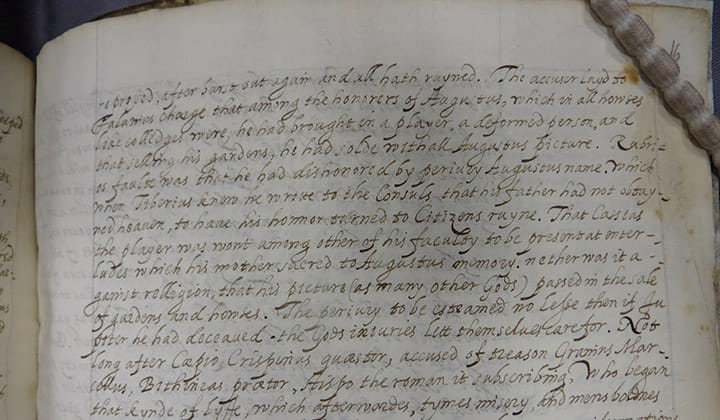 16
repressed, after burst out again and all hath ruyned. The accuser layd to
Falanius charge that among the honorers of Augustus, which in all howses
like colledges were, he had brought in a player, a deformed person, and
that selling his gardens, he had solde withall Augustus picture. Rubri-
us faulte was that he had dishonored by periury Augustus name. which
when Tiberius knew he wrote to the Consuls that his father had not obtay-
ned heaven, to have his honnor turned to Citizens ruyne. That Cassius
the player was wont among other of his faculty to be present at enter-
ludes which his mother sacred to Augustus memory. nether was it a-
gainst relligion, that his picture (as many other Gods) passed in the sale
of gardens and howses. The periury to be esteamed no lesse then if Ju
piter he had deceaued. the Gods iniuries lett themselves care for. Not
long after Cæpio Crispinus quæstor, accused of treason Granius Mar-
cellus, Bithineas prætor, Hispo the roman it subscribing, Who began
that kynde of lyffe, which afterwardes, tymes misery, and mens boldnes